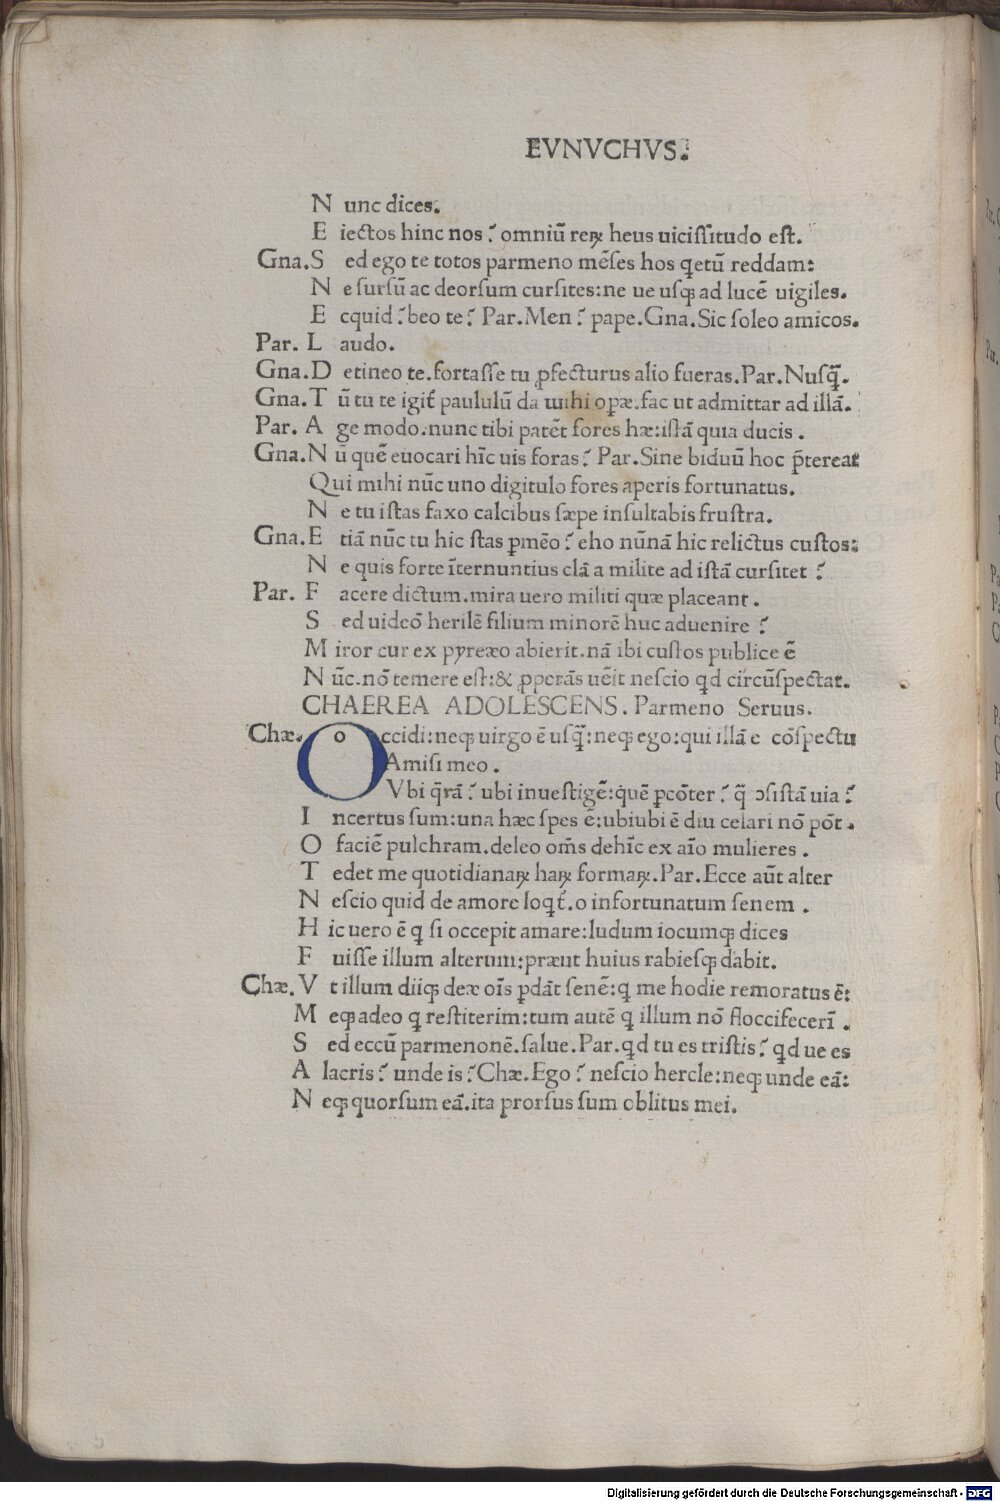 EVNVCHVS.
N unc dices.
E iectos hinc nos? omniū reꝝ heus uicissitudo est.
Gna. S ed ego te totos parmeno mēses hos q̄etū reddam:
N e sursū ac deorsum cursites: ne ue usq̢ ad lucē uigiles.
E cquid? beo te? Par. Men? pape. Gna. Sic soleo amicos.
Par. L audo.
Gna. D etineo te. fortasse tu ꝓfecturus alio fueras. Par. Nusq̄.
Gna. T ū tu te igit̄ paululū da mihi opæ. fac ut admittar ad illā.
Par. A ge modo. nunc tibi patēt fores hæ: istā quia ducis.
Gna. N ū quē euocari hīc uis foras? Par. Sine biduū hoc p̄tereat
Qui mihi nūc uno digitulo fores aperis fortunatus.
N e tu istas faxo calcibus sæpe insultabis frustra.
Gna. E tiā nūc tu hic stas ꝑmēo? eho nūnā hic relictus custos:
N e quis forte īternuntius clā a milite ad istā cursitet?
Par. F acere dictum. mira uero militi quæ placeant.
S ed uideō herilē filium minorē huc aduenire?
M iror cur ex pyreæo abierit. nā ibi custos publice ē
N ūc. nō temere est: & ꝓperās uēit nescio qd circūspectat.
CHAEREA ADOLESCENS. Parmeno Seruus.
Chæ. O o ccidi: neq̢ uirgo ē usq̄: neq̢ ego: qui illā e cōspectu
Amisi meo.
Vbi q̄rā? ubi inuestigē: quē ꝑcōter? q̄ ɔsistā uia?
I ncertus sum: una hæc spes ē: ubiubi ē diu celari nō pōt.
O faciē pulchram. deleo om̄s dehīc ex aīo mulieres.
T edet me quotidianaꝝ haꝝ formaꝝ. Par. Ecce aūt alter
N escio quid de amore loqt̄. o infortunatum senem.
H ic uero ē q si occepit amare: ludum iocumq̢ dices
F uisse illum alterum: præut huius rabiesq̢ dabit.
Chæ. V t illum diiq̢ deæ oīs ꝑdāt senē: q me hodie remoratus ē:
M eq̢ adeo q restiterim: tum autē q illum nō floccifecerī.
S ed eccū parmenonē. salue. Par. qd tu es tristis? qd ue es
A lacris? unde is? Chæ. Ego? nescio hercle: neq̢ unde eā:
N eq̢ quorsum eā. ita prorsus sum oblitus mei.
Digitalisierung gefördert durch die Deutsche Forschungsgemeinschaft - DFG